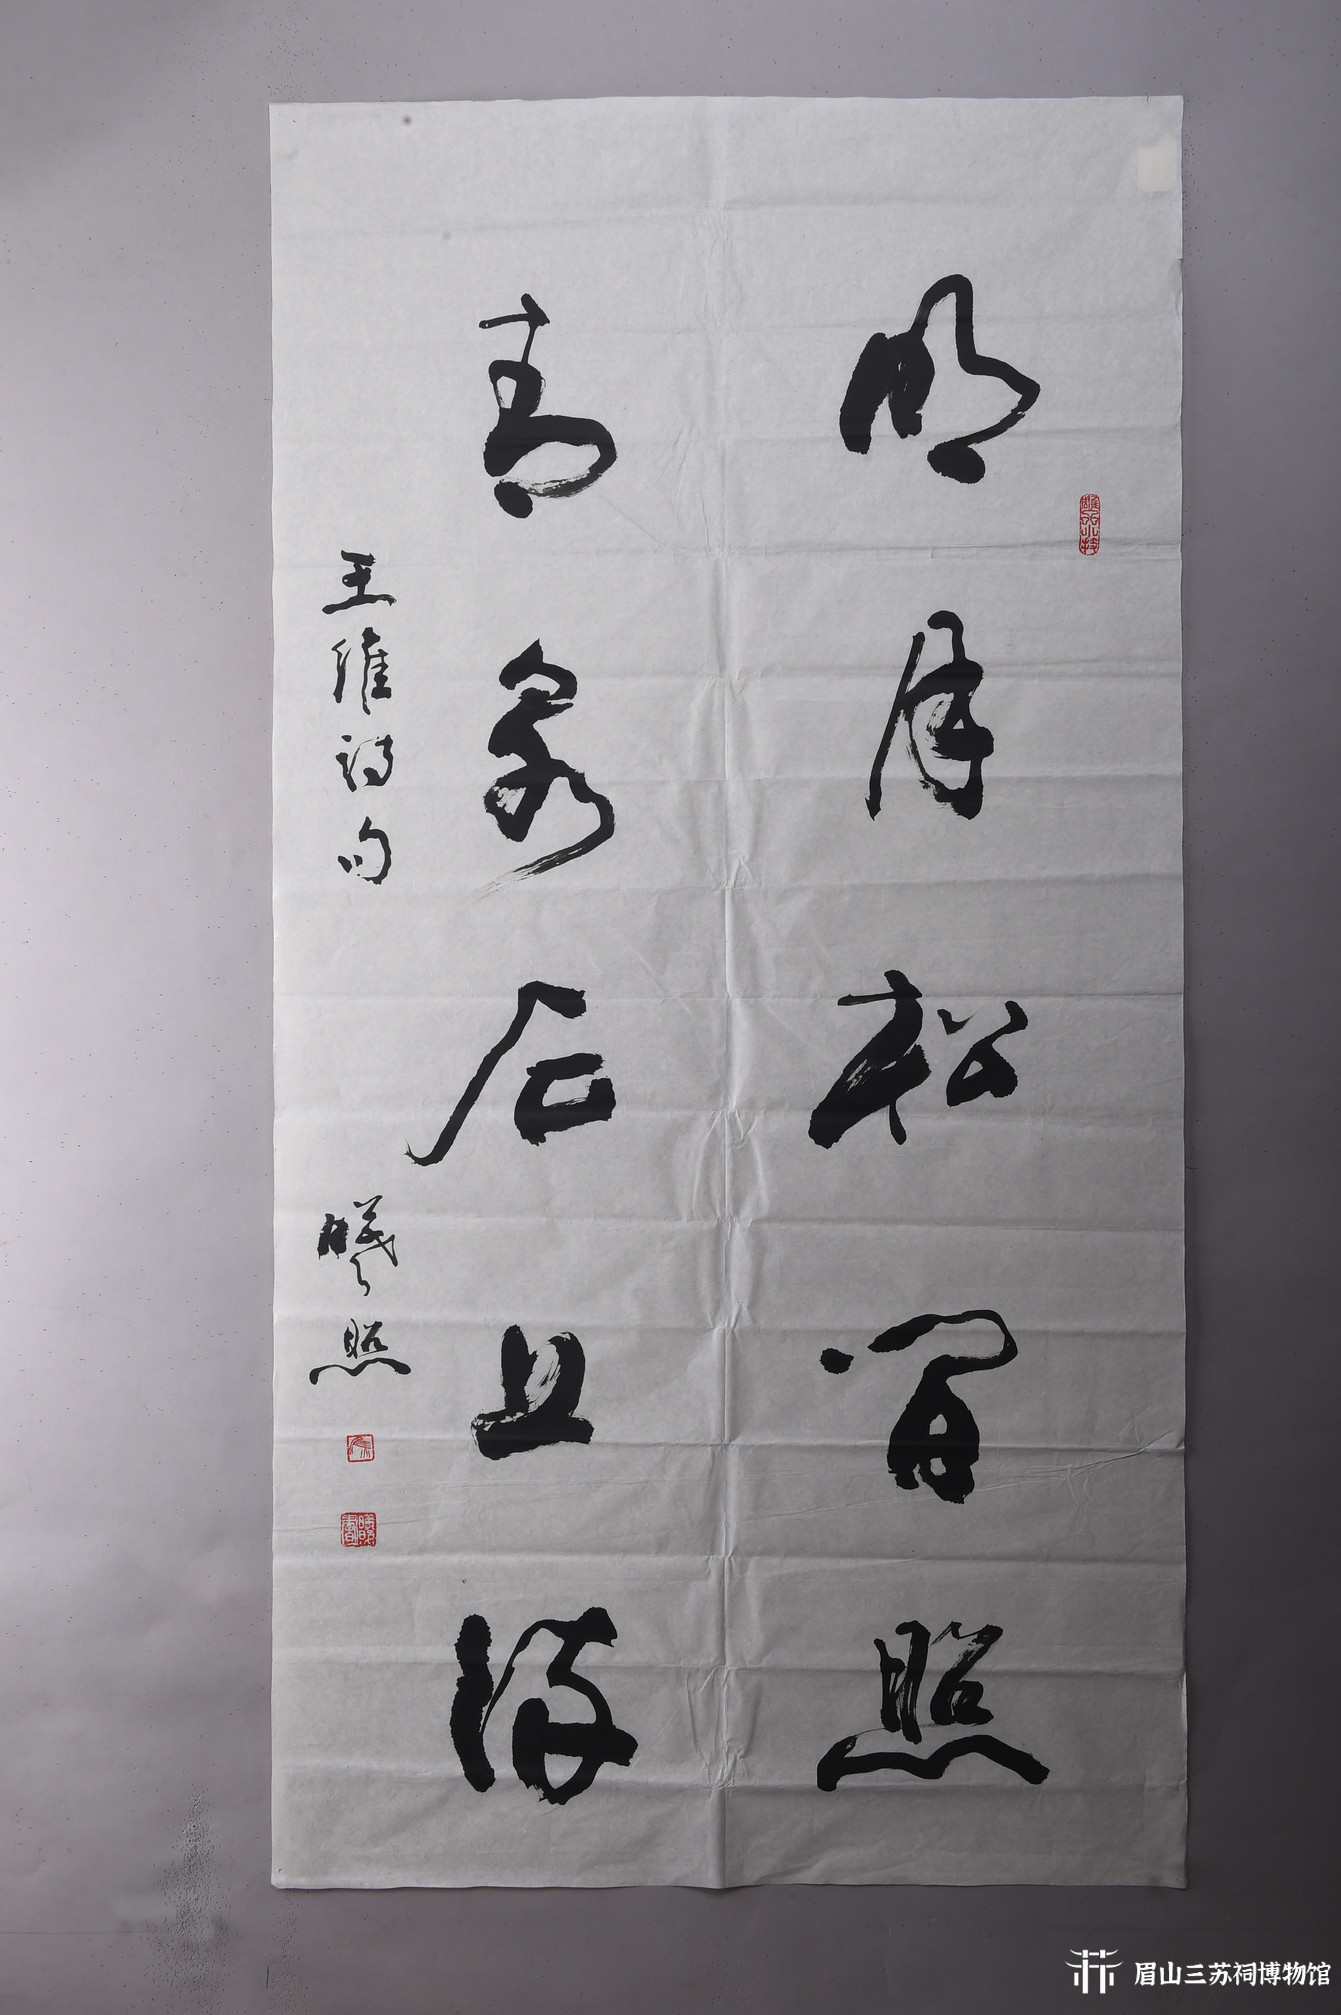 明月松间照
青泉石上流
王维诗句
曦照
眉山三苏祠博物馆